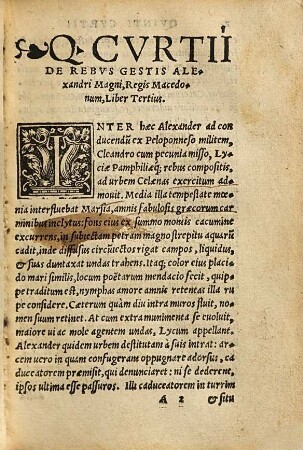 Q. CVRTII
DE REBVS GESTIS ALE-
xandri Magni, Regis Macedo-
num, Liber Tertius.
INTER hæc Alexander ad con
ducendũ ex Peloponneso militem,
Cleandro cum pecunia misso, Ly-
ciæ Pamphiliæq; rebus compositis,
ad urbem Celænas exercitum ad-
mouit. Media illa tempestate mœ
nia interfluebat Marsia, amnis fabulosis græcorum car
minibus inclytus: fons eius ex summo montis cacumine
excurrens, in subiectam petram magno strepitu aquarũ
cadit, inde diffusus circũiectos rigat campos, liquidus,
& suas duntaxat undas trahens. Itaq; color eius placi-
do mari similis, locum poëtarum mendacio fecit, quip-
pe traditum est, nymphas amore amnis retentas illa ru
pe considere. Cæterum quàm diu intra muros fluit, no-
men suum retinet. At cum extra munimenta se euoluit,
maiore ui ac mole agentem undas, Lycum appellant.
Alexander quidem urbem destitutam à suis intrat: ar-
cem uero in quam confugerant oppugnare adorsus, ca
duceatorem præmisit, qui denunciaret: ni se dederent,
ipsos ultima esse passuros. Illi caduceatorem in turrim
A 2 & situ